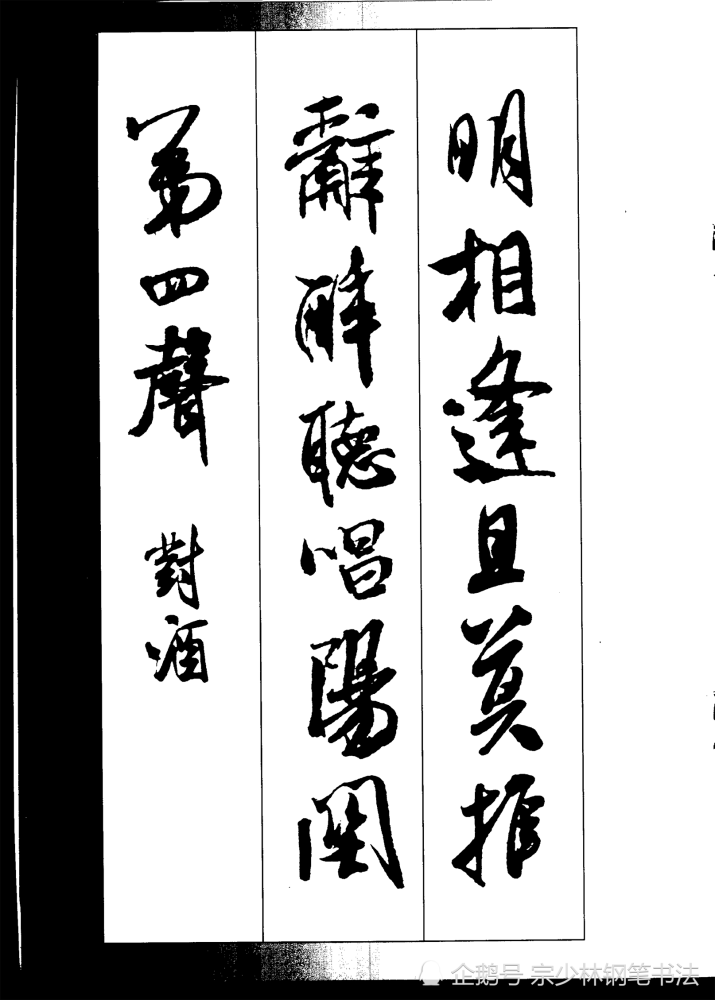 明相逢且莫推
辭醉聽唱陽関
第四聲 對酒
企鹅号 宗少林钢笔书法